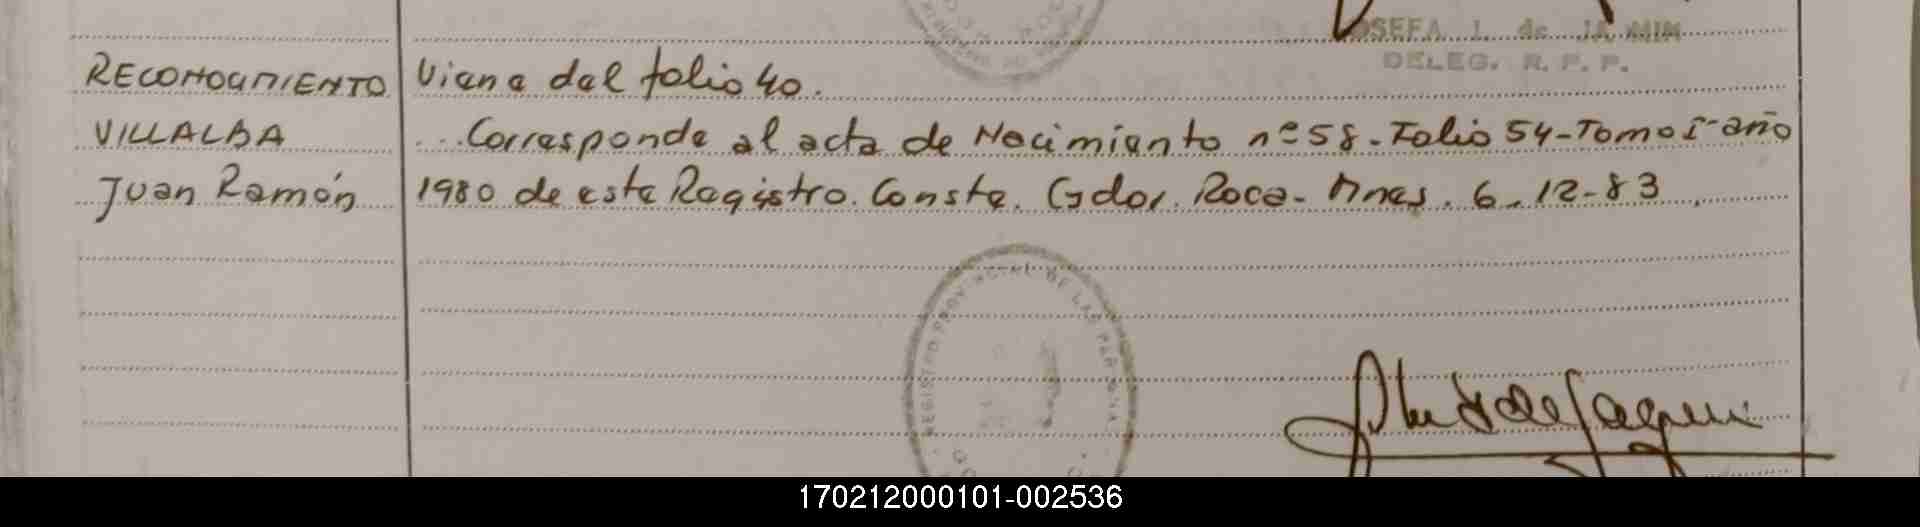 JOSEFA I. de JAMIN
DELEG. R. P. P.
RECONOCIMIENTO
VILLALBA
Juan Ramón
Viene del folio 40.
...Corresponde al acta de Nacimiento nº 58-Folio 54-Tomo I-año
1980 de este Registro. Conste. Gdor. Roca-Mnes. 6-12-83
REGISTRO PROVINCIAL DE LAS PERSONAS
170212000101-002536